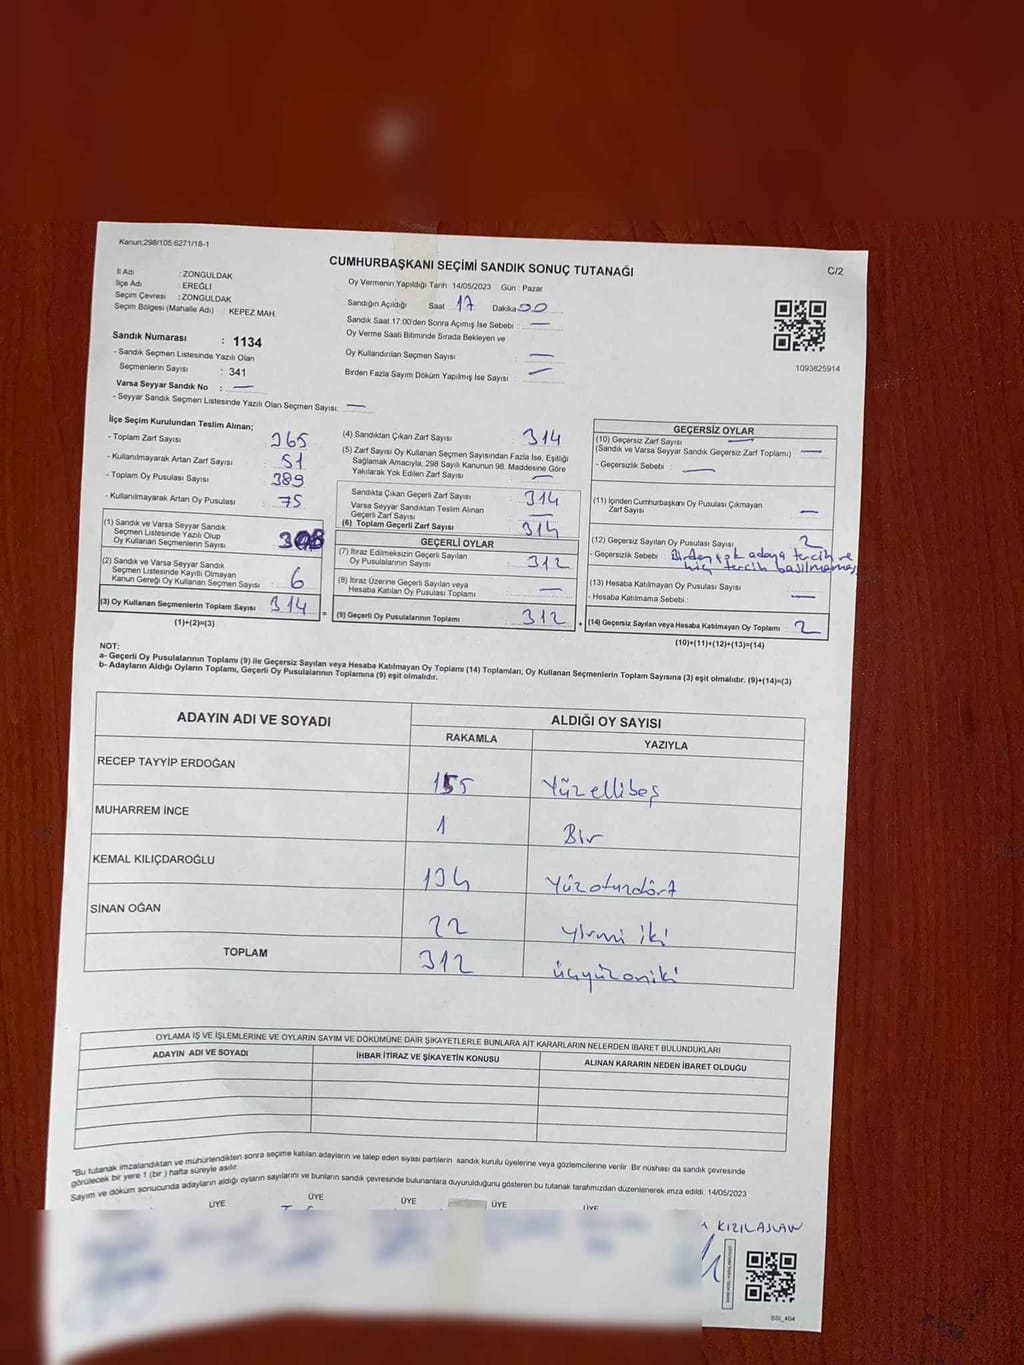 Kanun;298/105,6271/18-1
CUMHURBAŞKANI SEÇİMİ SANDIK SONUÇ TUTANAĞI
C/2
İl Adı : ZONGULDAK
İlçe Adı : EREĞLİ
Seçim Çevresi : ZONGULDAK
Seçim Bölgesi (Mahalle Adı) KEPEZ MAH.
Sandık Numarası : 1134
- Sandık Seçmen Listesinde Yazılı Olan
Seçmenlerin Sayısı : 341
Varsa Seyyar Sandık No : —
- Seyyar Sandık Seçmen Listesinde Yazılı Olan Seçmen Sayısı —
Oy Vermenin Yapıldığı Tarih 14/05/2023 Gün : Pazar
Sandığın Açıldığı Saat 17 Dakika 00
Sandık Saat 17:00'den Sonra Açımış İse Sebebi : —
Oy Verme Saati Bitiminde Sırada Bekleyen ve
Oy Kullandırılan Seçmen Sayısı —
Birden Fazla Sayım Döküm Yapılmış İse Sayısı : —
1093825914
İlçe Seçim Kurulundan Teslim Alınan;
- Toplam Zarf Sayısı 365
- Kullanılmayarak Artan Zarf Sayısı 51
- Toplam Oy Pusulası Sayısı 389
- Kullanılmayarak Artan Oy Pusulası 75
(1) Sandık ve Varsa Seyyar Sandık
Seçmen Listesinde Yazılı Olup
Oy Kullanan Seçmenlerin Sayısı 308
(2) Sandık ve Varsa Seyyar Sandık
Seçmen Listesinde Kayıtlı Olmayan
Kanun Gereği Oy Kullanan Seçmen Sayısı 6
(3) Oy Kullanan Seçmenlerin Toplam Sayısı 314 =
(1)+(2)=(3)
(4) Sandıktan Çıkan Zarf Sayısı 314
(5) Zarf Sayısı Oy Kullanan Seçmen Sayısından Fazla İse, Eşitliği
Sağlamak Amacıyla, 298 Sayılı Kanunun 98. Maddesine Göre
Yakılarak Yok Edilen Zarf Sayısı —
Sandıkta Çıkan Geçerli Zarf Sayısı 314
Varsa Seyyar Sandıktan Teslim Alınan
Geçerli Zarf Sayısı —
(6) Toplam Geçerli Zarf Sayısı 314
GEÇERLİ OYLAR
(7) İtiraz Edilmeksizin Geçerli Sayılan
Oy Pusulalarının Sayısı 312
(8) İtiraz Üzerine Geçerli Sayılan veya
Hesaba Katılan Oy Pusulası Toplamı —
(9) Geçerli Oy Pusulalarının Toplamı 312 +
GEÇERSİZ OYLAR
(10) Geçersiz Zarf Sayısı —
(Sandık ve Varsa Seyyar Sandık Geçersiz Zarf Toplamı) —
- Geçersizlik Sebebi : —
(11) İçinden Cumhurbaşkanı Oy Pusulası Çıkmayan
Zarf Sayısı —
(12) Geçersiz Sayılan Oy Pusulası Sayısı 2
- Geçersizlik Sebebi : Birden çok adaya tercih ve
hiç tercih basılmaması
(13) Hesaba Katılmayan Oy Pusulası Sayısı
- Hesaba Katılmama Sebebi : —
(14) Geçersiz Sayılan veya Hesaba Katılmayan Oy Toplamı 2
(10)+(11)+(12)+(13)=(14)
NOT:
a- Geçerli Oy Pusulalarının Toplamı (9) ile Geçersiz Sayılan veya Hesaba Katılmayan Oy Toplamı (14) Toplamları, Oy Kullanan Seçmenlerin Toplam Sayısına (3) eşit olmalıdır. (9)+(14)=(3)
b- Adayların Aldığı Oyların Toplamı, Geçerli Oy Pusulalarının Toplamına (9) eşit olmalıdır.
ADAYIN ADI VE SOYADI ALDIĞI OY SAYISI
RAKAMLA YAZIYLA
RECEP TAYYİP ERDOĞAN 155 Yüzellibeş
MUHARREM İNCE 1 Bir
KEMAL KILIÇDAROĞLU 134 Yüzotuzdört
SİNAN OĞAN 22 yirmi iki
TOPLAM 312 üçyüzoniki
OYLAMA İŞ VE İŞLEMLERİNE VE OYLARIN SAYIM VE DÖKÜMÜNE DAİR ŞİKAYETLERLE BUNLARA AİT KARARLARIN NELERDEN İBARET BULUNDUKLARI
ADAYIN ADI VE SOYADI İHBAR İTİRAZ VE ŞİKAYETİN KONUSU ALINAN KARARIN NEDEN İBARET OLDUĞU
"Bu tutanak imzalandıktan ve mühürlendikten sonra seçime katılan adayların ve talep eden siyasi partilerin sandık kurulu üyelerine veya gözlemcilerine verilir. Bir nüshası da sandık çevresinde
görülecek bir yere 1 (bir ) hafta süreyle asılır.
Sayım ve döküm sonucunda adayların aldığı oyların sayılarını ve bunların sandık çevresinde bulunanlara duyurulduğunu gösteren bu tutanak tarafımızdan düzenlenerek imza edildi. 14/05/2023
ÜYE ÜYE ÜYE ÜYE ÜYE
KIZILASLAN
SSI_404